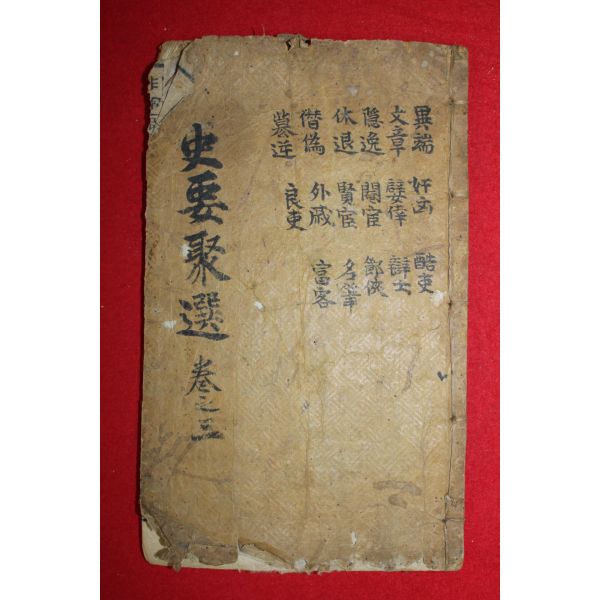 異端 奸凶 酷吏
文章 嬖倖 辯士
隱逸 閹宦 節俠
休退 賢宦 名筆
僭偽 外戚 富客
簒逆 良吏
史要聚選 卷之三